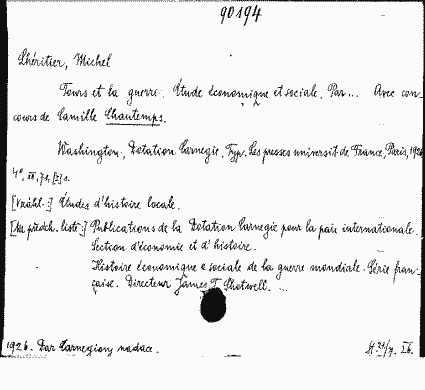 90194
Lhéritier, Michel
Tours et la guerre. Étude économique et sociale. Par ... Avec con-
cours de Camille Chautemps.
Washington, Dotation Carnegie. Typ. Les presses universit. de France, Paris, 1926
4°, 71, [1] s.
[V záhl.:] Études d'histoire locale.
[Na předch. liště:] Publications de la Dotation Carnegie pour la paix internationale.
Section d'économie et d'histoire.
Histoire économique e sociale de la guerre mondiale. Série fran-
çaise. Directeur James T. Shotwell. ...
1926. Dar Carnegiovy nadace.